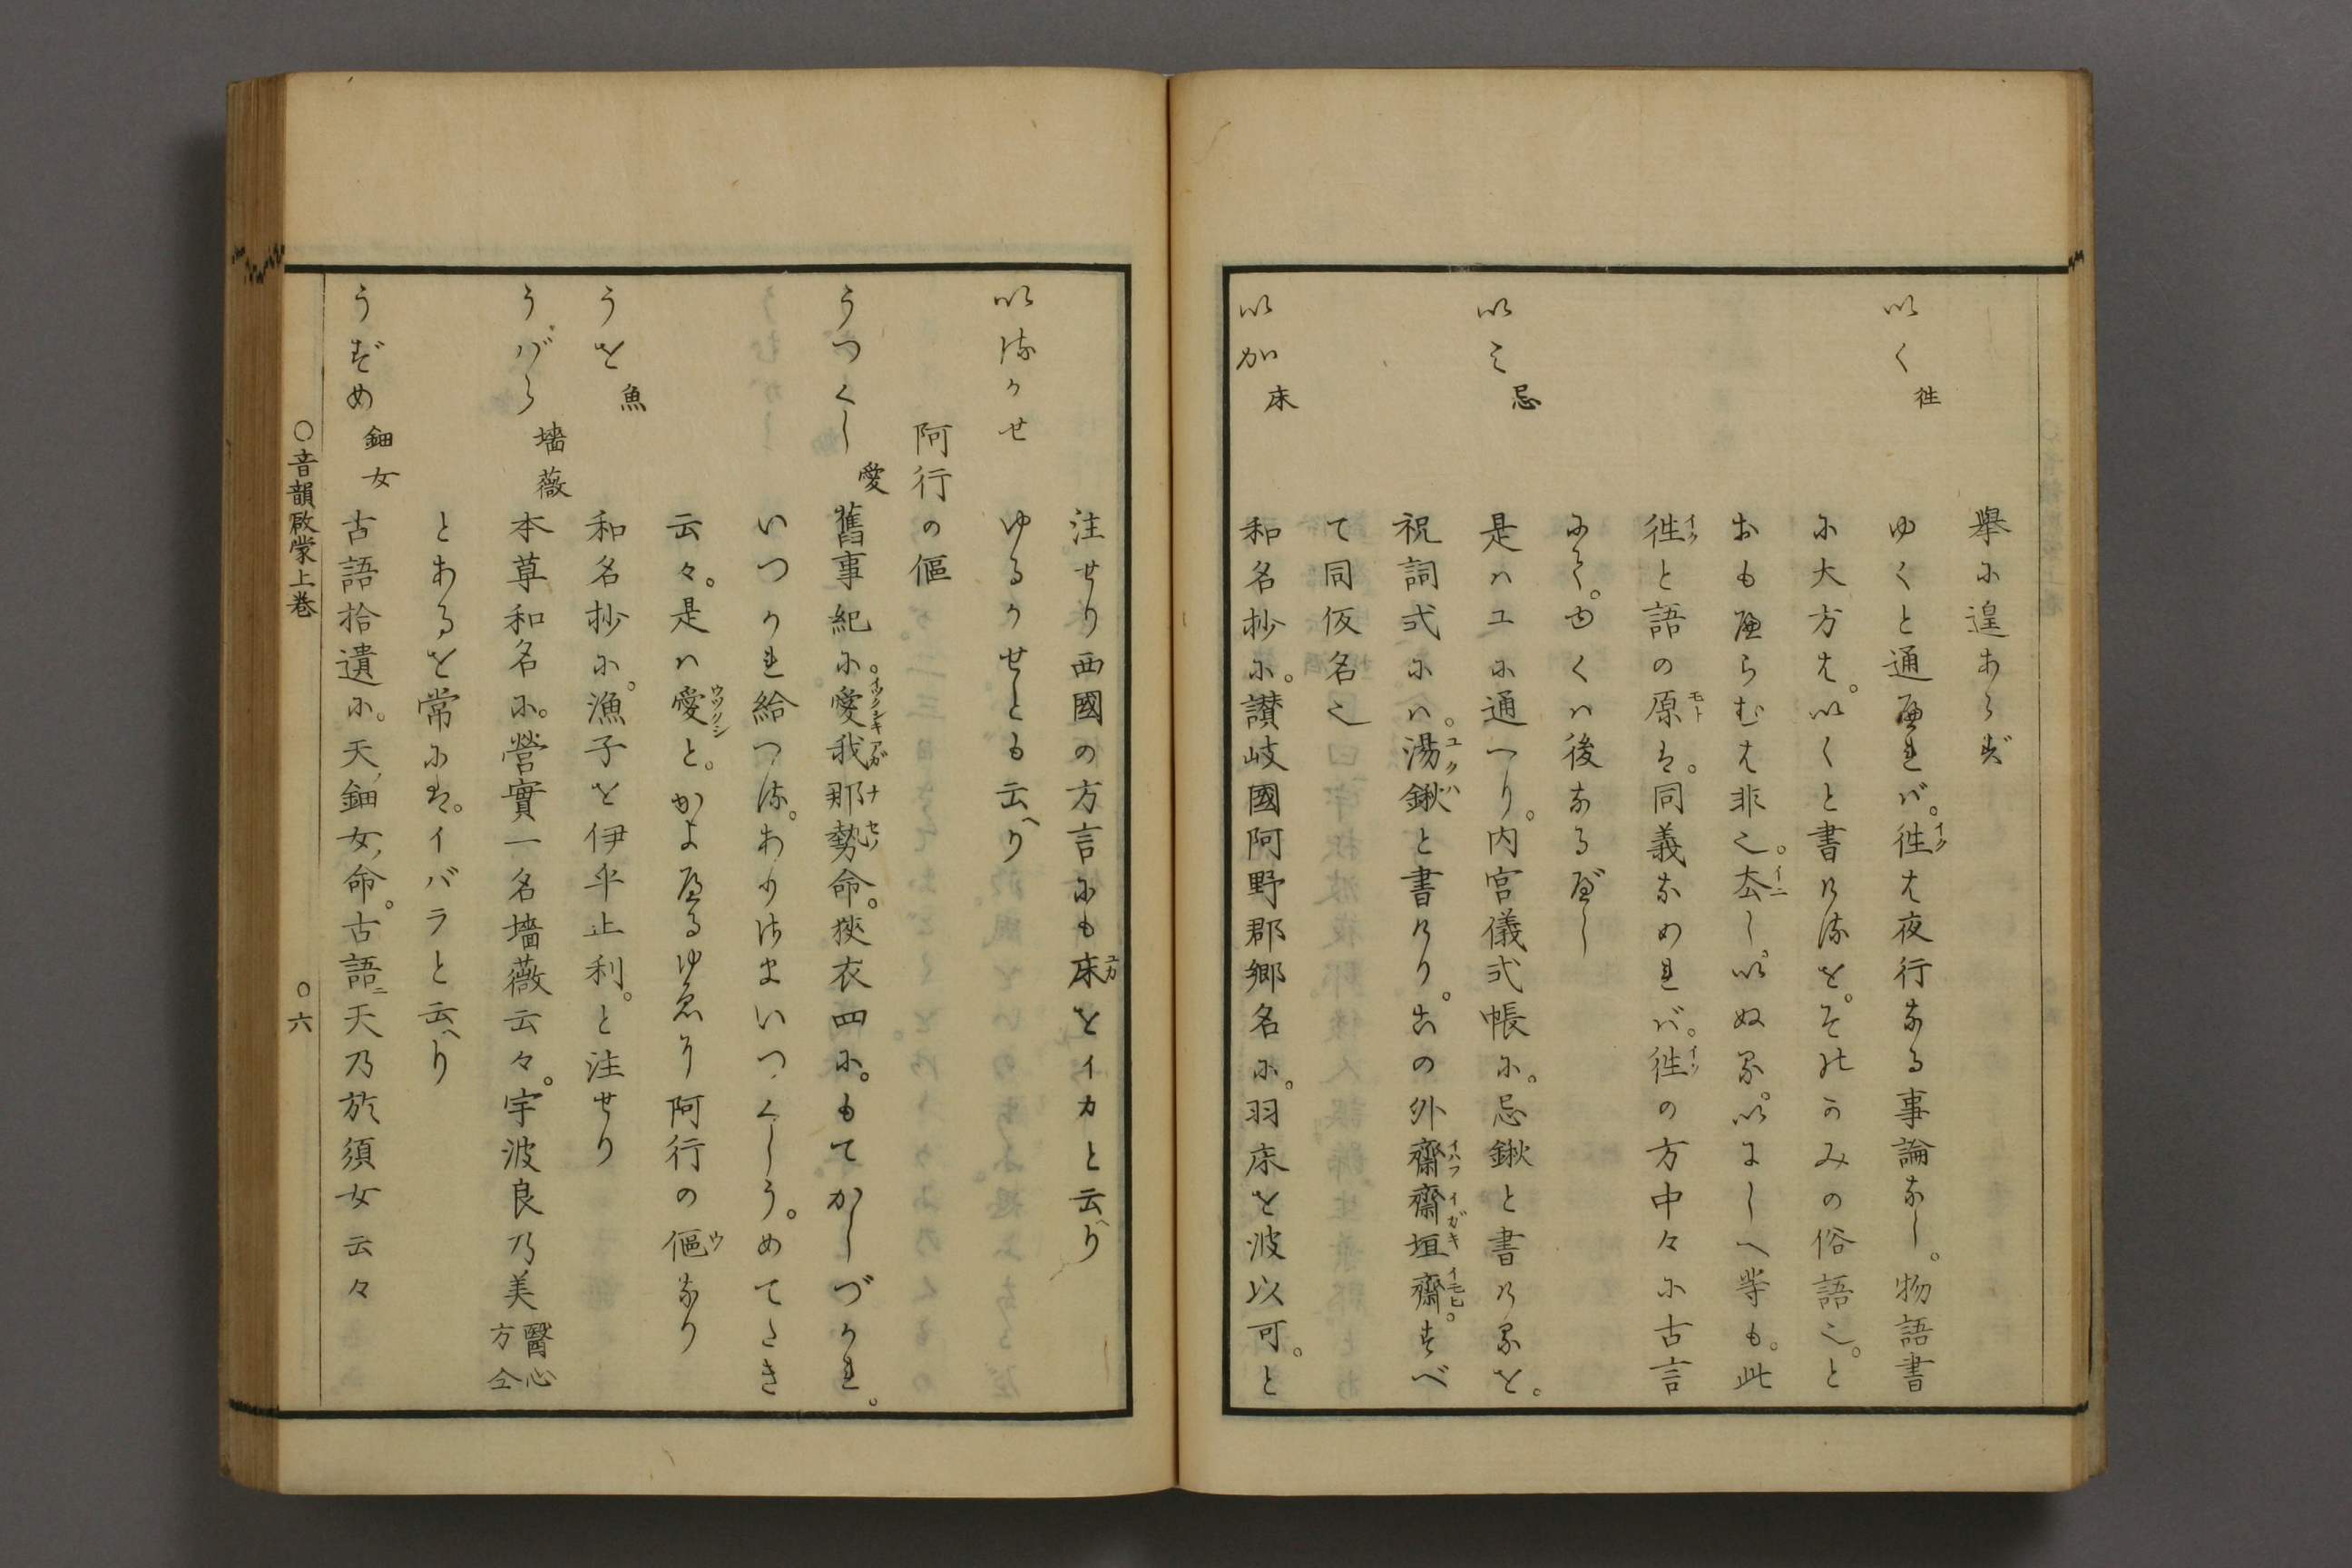 擧に遑あらず
いく 徃 ゆくと通へれバ。徃イクは夜行なる事論なし。物語書
に大方は。いくと書けるを。そはかのみの俗語也。と
おもへらむは非也。去イニし。いぬる。いにしへ等も。此
徃イクと語の原モトは。同義なめれバ。徃イクの方中々に古言
にて。ゆくハ後なるべし
いミ 忌 是ハユに通へり。内宮儀式帳に。忌鍬と書ける を。
祝詞式にハ。湯鍬ユクハと書けり。此の外齋イハフ齋垣イガキ齋イモヒ。すべ
て同仮名也
いか 床 和名抄に。讃岐國阿野郡郷名に。羽床を波以可。と
注せり西國の方言にも床ユカをイカと云へり
いるかせ ゆるかせとも云へり
阿行の傴
うつくし 愛 舊事紀に。愛イツクシキ我アガ那ナ勢セノ命。狹衣四に。もてかしづかれ。
いつかれ給つる。ありさまいつくしう。めてたき
云々。是ハ愛ウツクシと。かよへるゆゑに阿行の傴ウなり
うを 魚 和名抄に。漁子を伊乎止利。と注せり
うばら 墻薇 本草和名に。營實一名墻薇云々。宇波良乃美 醫心方仝
とあるを常には。イバラと云へり
うずめ 鈿女 古語拾遺に。天ノ鈿女ノ命。古語ニ天乃於須女云々
〇音韻啟蒙上巻 〇六